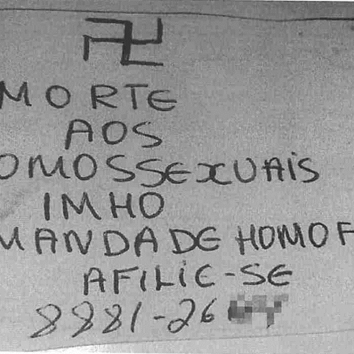 MORTE
AOS
OMOSSEXUAIS
IMHO
MANDADE HOMOF
AFILIE-SE
8881-26